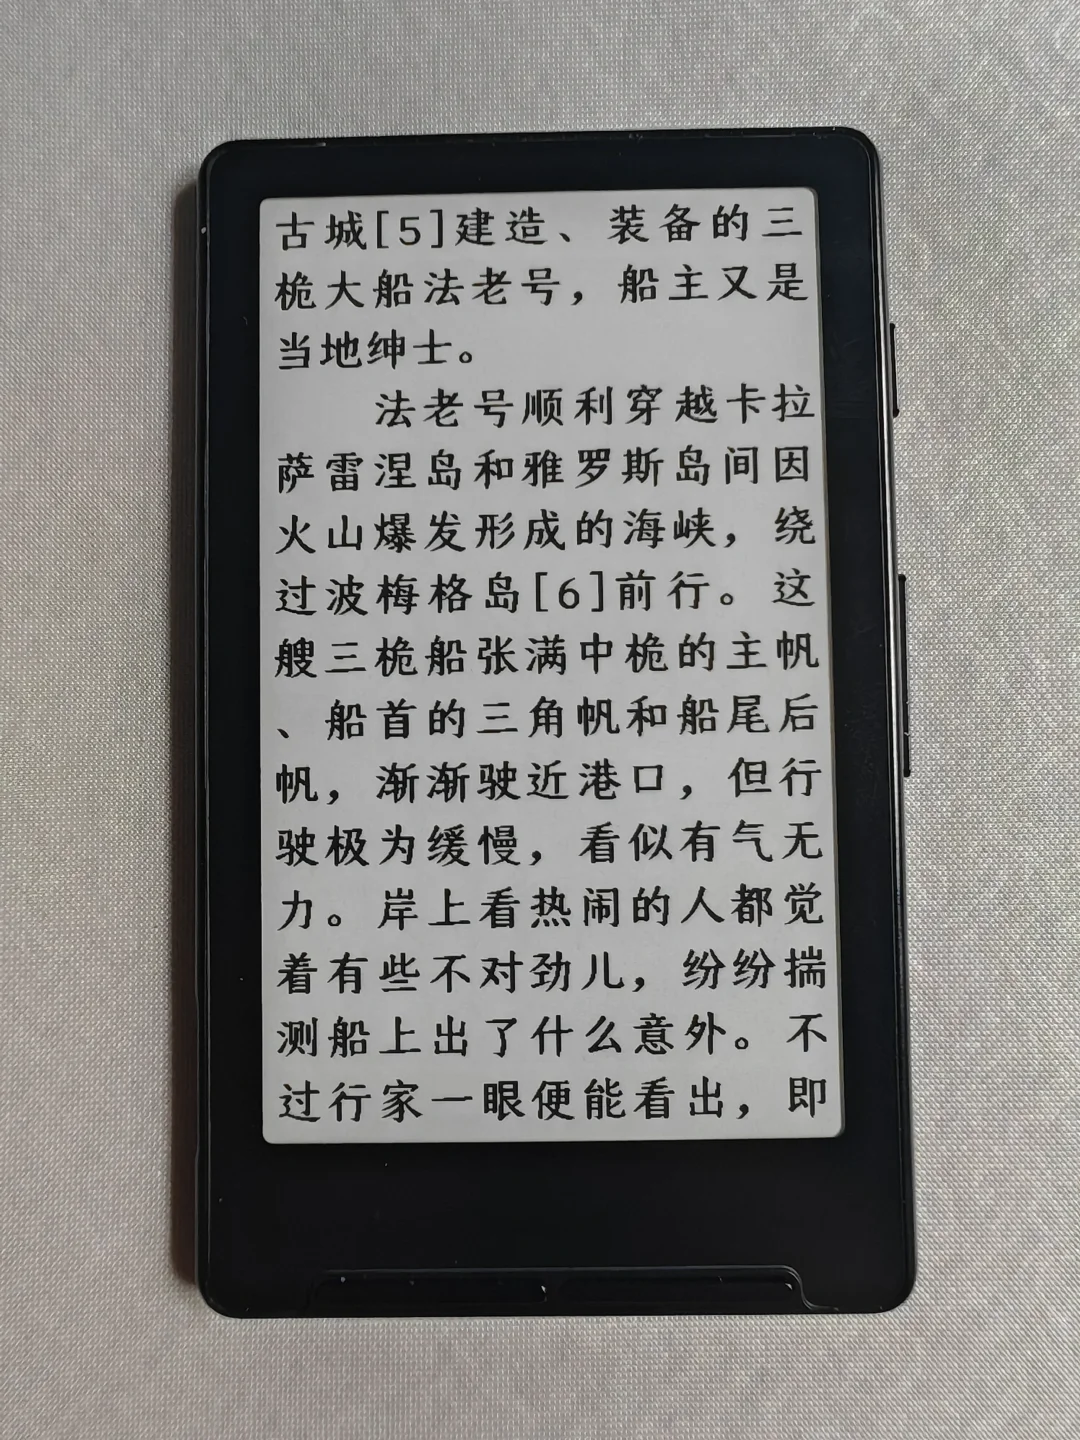 古城[5]建造、装备的三
桅大船法老号，船主又是
当地绅士。
法老号顺利穿越卡拉
萨雷涅岛和雅罗斯岛间因
火山爆发形成的海峡，绕
过波梅格岛[6]前行。这
艘三桅船张满中桅的主帆
、船首的三角帆和船尾后
帆，渐渐驶近港口，但行
驶极为缓慢，看似有气无
力。岸上看热闹的人都觉
着有些不对劲儿，纷纷揣
测船上出了什么意外。不
过行家一眼便能看出，即